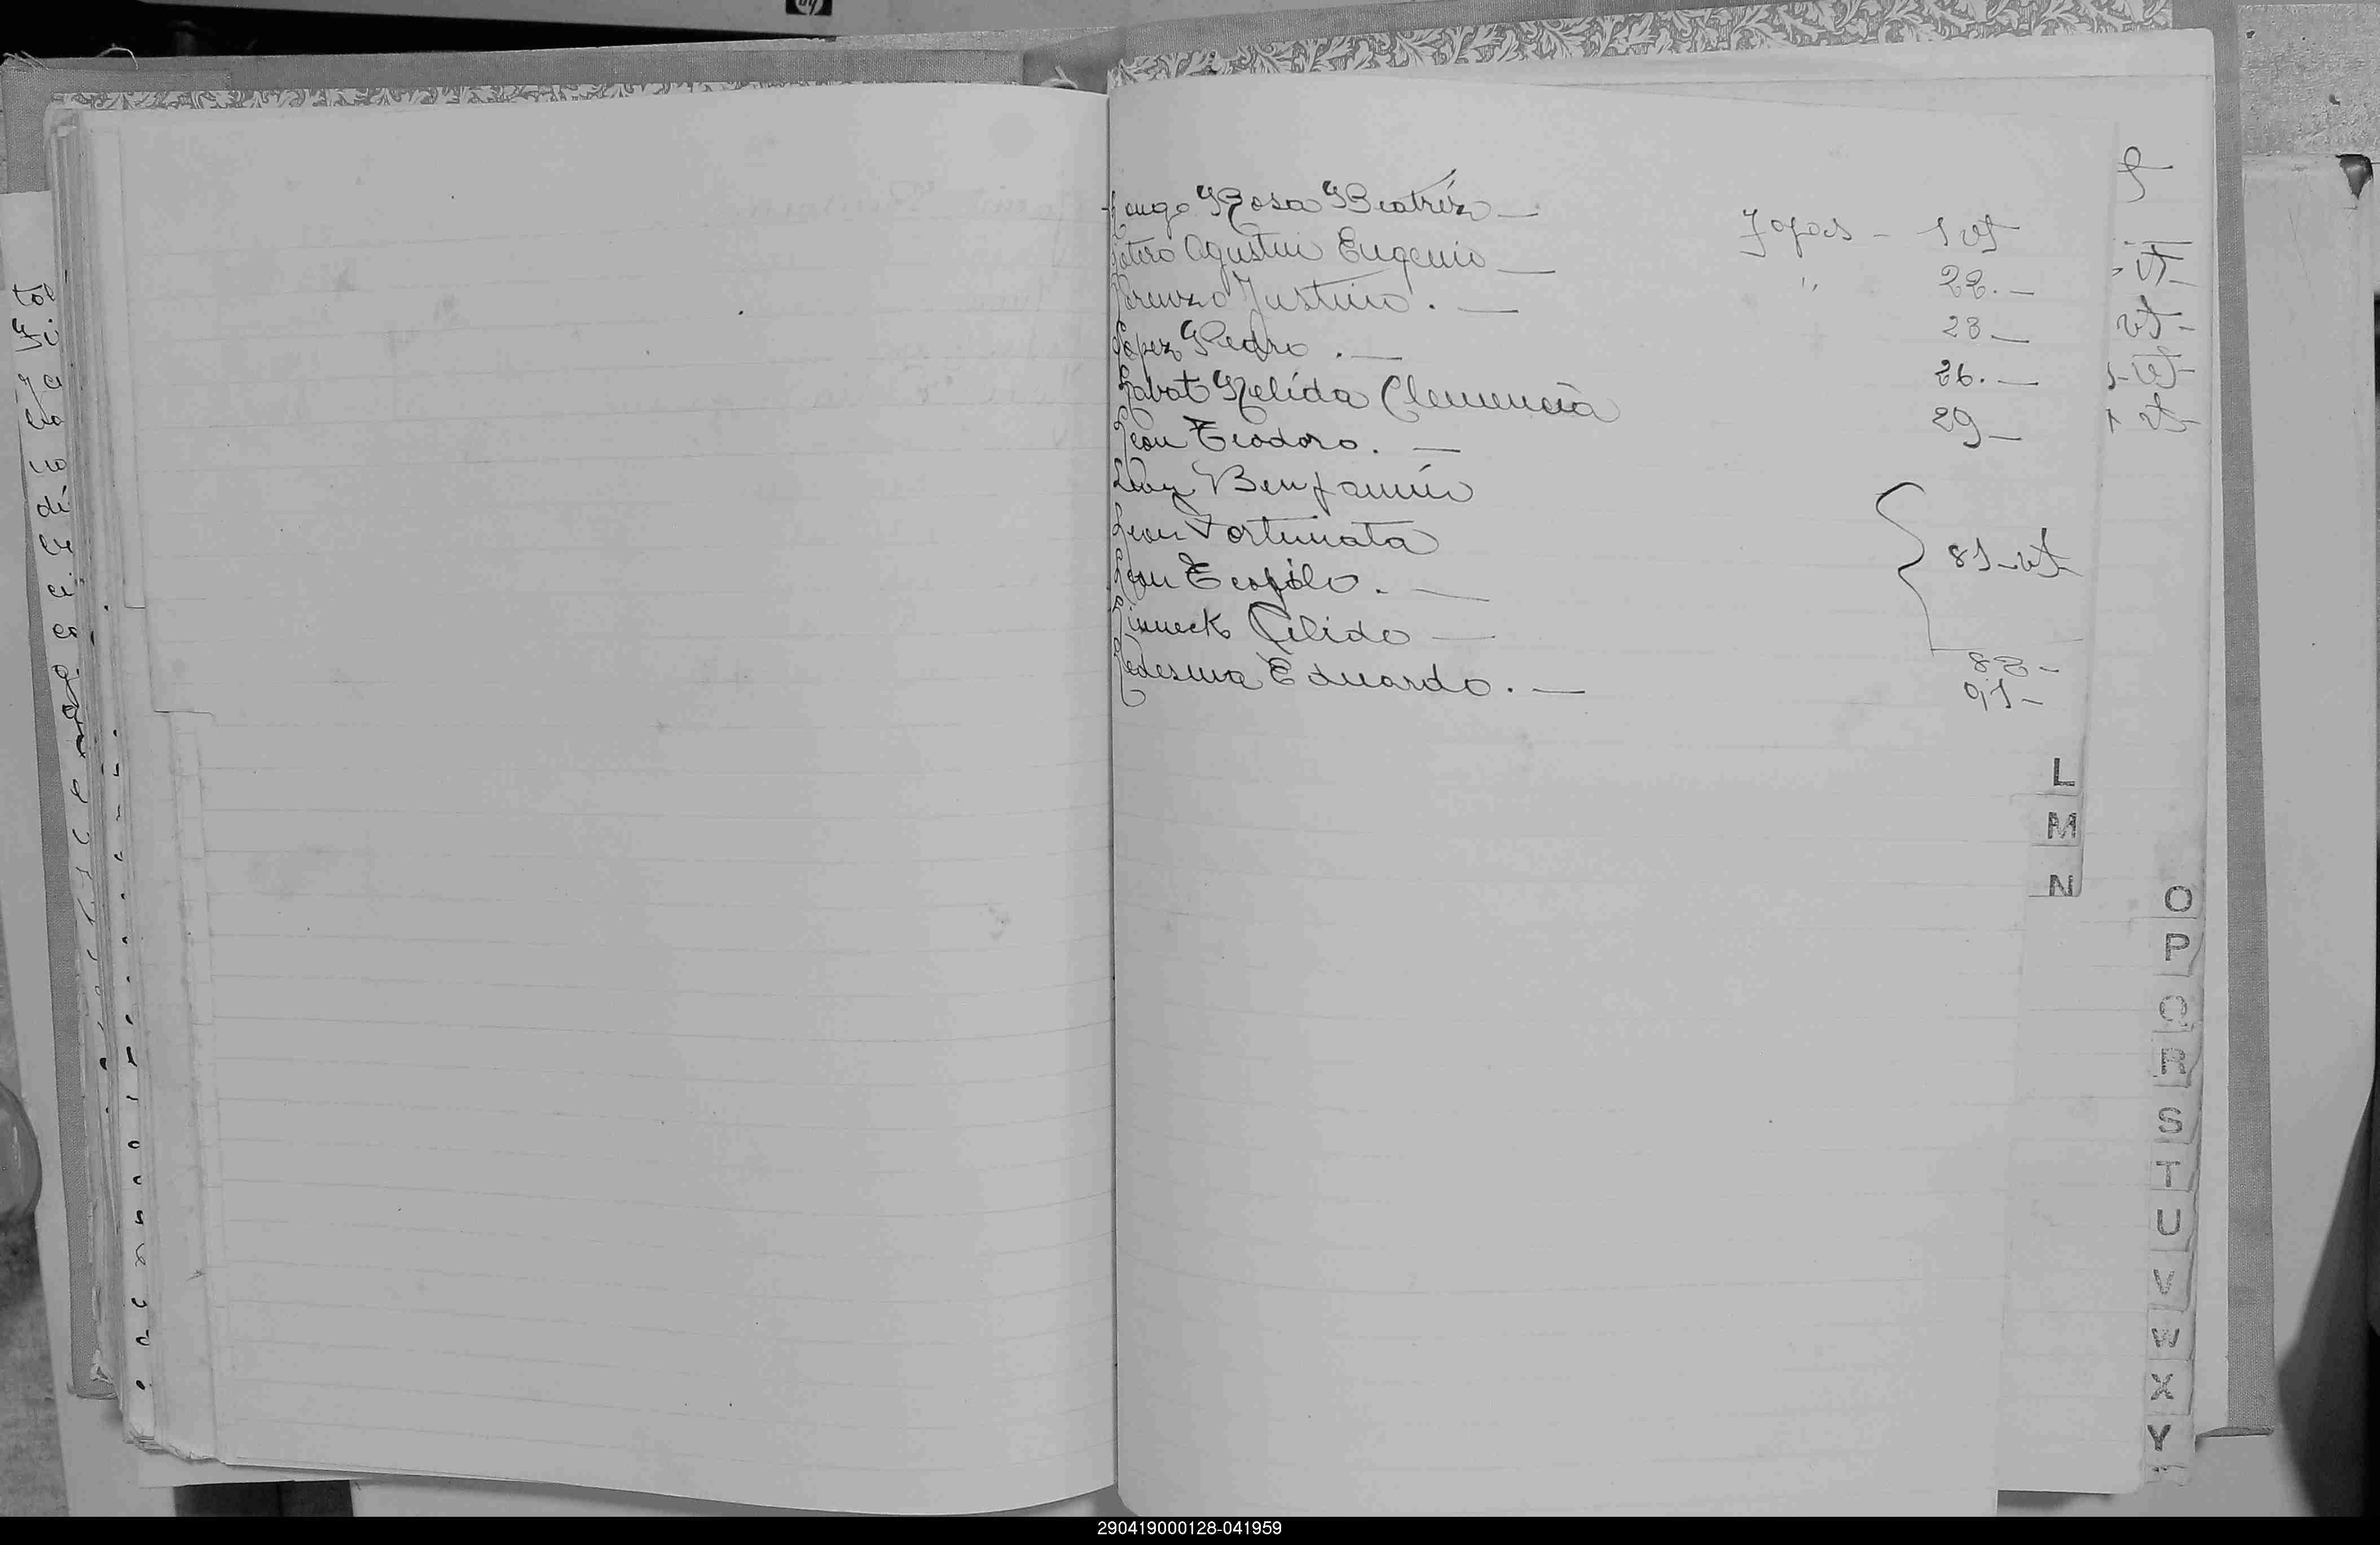 Lungo Rosa Beatríz —
Lotero Agustin Eugenio —
Lorenzo Justino . —
López Pedro . —
Labat Nelída Clemencia
Leon Teodoro . —
Levy Benjamín
Leon Fortunata
Leon Teofilo . —
Célido —
Ledesma Eduardo . —
Fojas - 1 vt
" 22. —
23 —
26. —
29 —
81 - vt
82 -
91 -
L
M
N
O
P
Q
R
S
T
U
V
W
X
Y
290419000128-041959